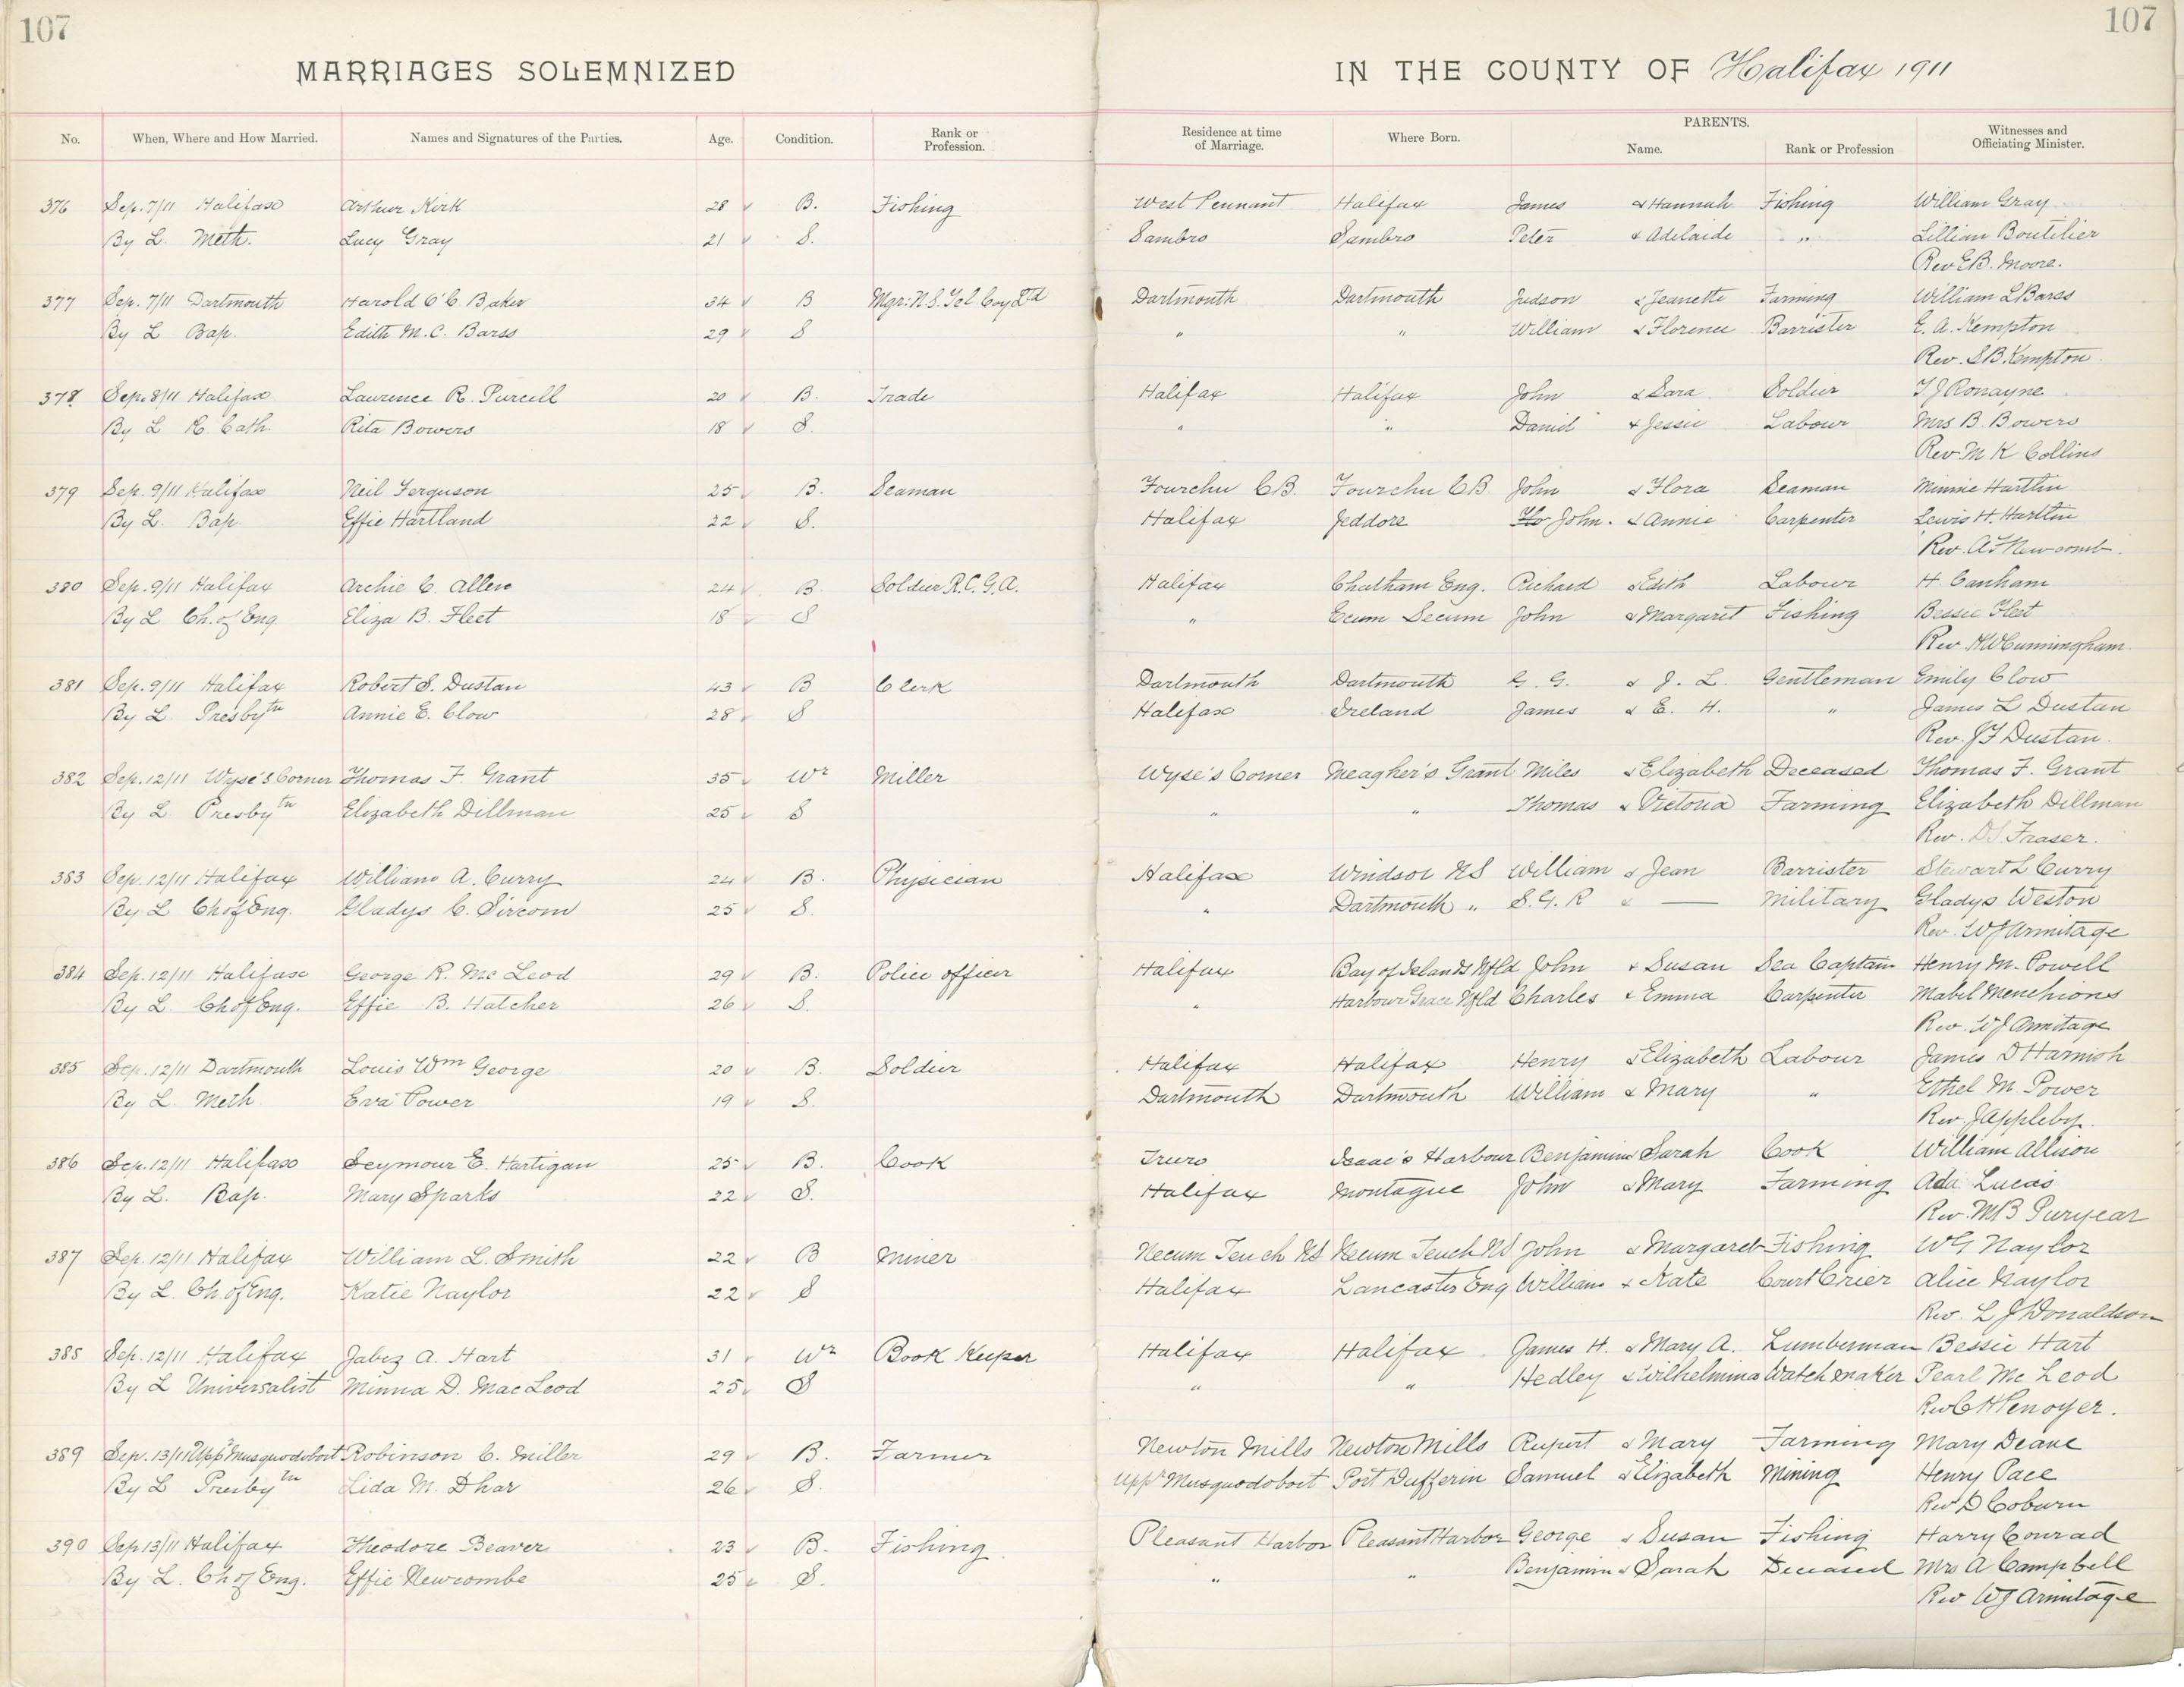 107 107
MARRIAGES SOLEMNIZED IN THE COUNTY OF Halifax 1911
No. When, Where and How Married. Names and Signatures of the Parties. Age. Condition. Rank or Profession. Residence at time of Marriage. Where Born. PARENTS. Name. Rank or Profession Witnesses and Officiating Minister.
376 Sep. 7/11 Halifax Arthur Kirk 28 B. Fishing West Pennant Halifax James & Hannah Fishing William Gray
By L. Meth. Lucy Gray 21 S. Sambro Sambro Peter & Adelaide " Lillian Boutilier
Rev E.B. Moore.
377 Sep. 7/11 Dartmouth Harold C'C Baker 34 B Mgr: N.S. Tel Coy Ltd Dartmouth Dartmouth Judson & Jeanette Farming William L Barss
By L Bap. Edith M. C. Barss 29 S " " William & Florence Barrister E. A. Kempton
Rev. S B Kempton.
378 Sep. 8/11 Halifax Laurence R. Purcell 20 B. Trade Halifax Halifax John & Sara Soldier T J Ronayne
By L R. Cath. Rita Bowers 18 S. " " Daniel & Jessie Labour Mrs B. Bowers
Rev M K Collins
379 Sep. 9/11 Halifax Neil Ferguson 25 B. Seaman Fourchu C.B. Fourchu C B John & Flora Seaman Minnie Hartlin
By L. Bap. Effie Hartland 22 S. Halifax Jeddore John. & Annie Carpenter Lewis H. Hartlin
Rev. A F Newcomb.
380 Sep. 9/11 Halifax Archie C. Allen 24 B Soldier R.C.G.A. Halifax Chatham Eng. Richard & Edith Labour H. Canham
By L Ch. of Eng Eliza B. Fleet 18 S " Ecum Secum John & Margaret Fishing Bessie Fleet
Rev. H W Cunningham
381 Sep. 9/11 Halifax Robert S. Dustan 43 B Clerk Dartmouth Dartmouth G. G. & J. L. Gentleman Emily Clow
By L Presbytn Annie E. Clow 28 S Halifax Ireland James & E. H. " James L Dustan
Rev. J F Dustan.
382 Sep. 12/11 Wyse's Corner Thomas F. Grant 35 Wr Miller Wyse's Corner Meagher's Grant Miles & Elizabeth Deceased Thomas F. Grant
By L. Presbytn Elizabeth Dillman 25 S " " Thomas & Victoria Farming Elizabeth Dillman
Rev. D S Fraser.
383 Sep. 12/11 Halifax William A. Curry 24 B. Physician Halifax Windsor N S William & Jean Barrister Stewart L Curry
By L Ch of Eng. Gladys C. Sircom 25 S. " Dartmouth " S. G. R & — Military Gladys Weston
Rev. W J Armitage
384 Sep. 12/11 Halifax George R. Mc Leod 29 B. Police officer Halifax Bay of Islands Nfld John & Susan Sea Captain Henry M. Powell
By L. Ch of Eng. Effie B. Hatcher 26 S. " Harbour Grace Nfld Charles & Emma Carpenter Mabel Menchions
Rev. W J Armitage
385 Sep. 12/11 Dartmouth Louis Wm George 20 B. Soldier Halifax Halifax Henry & Elizabeth Labour James D Harnish
By L. Meth. Eva Power 19 S. Dartmouth Dartmouth William & Mary " Ethel M. Power
Rev. J Appleby.
386 Sep. 12/11 Halifax Seymour E. Hartigan 25 B. Cook Truro Isaac's Harbour Benjamin & Sarah Cook William Allison
By L. Bap. Mary Sparks 22 S. Halifax Montague John & Mary Farming Ada Lucas
Rev. M B Puryear
387 Sep. 12/11 Halifax William L. Smith 22 B Miner Necum Teuch N S Necum Teuch N S John & Margaret Fishing W G Naylor
By L. Ch. of Eng. Katie Naylor 22 S Halifax Lancaster Eng William & Kate Court Crier Alice Naylor
Rev. L J Donaldson
388 Sep. 12/11 Halifax Jabez A. Hart 31 Wr Book Keeper Halifax Halifax James H. & Mary A. Lumberman Bessie Hart
By L Universalist Minna D. Mac Leod 25 S " " Hedley & Wilhelmina Watch maker Pearl Mc Leod
Rev C H Penoyer.
389 Sep. 13/11 Uppr Musquodoboit Robinson C. Miller 29 B. Farmer Newton Mills Newton Mills Rupert & Mary Farming Mary Deane
By L Presbytn Lida M. Dhar 26 S. Uppr Musquodoboit Port Dufferin Samuel & Elizabeth Mining Henry Pace
Rev D Coburn
390 Sep 13/11 Halifax Theodore Beaver 23 B. Fishing Pleasant Harbor Pleasant Harbor George & Susan Fishing Harry Conrad
By L. Ch of Eng. Effie Newcombe 25 S. " " Benjamin & Sarah Deceased Mrs A Campbell
Rev W J Armitage